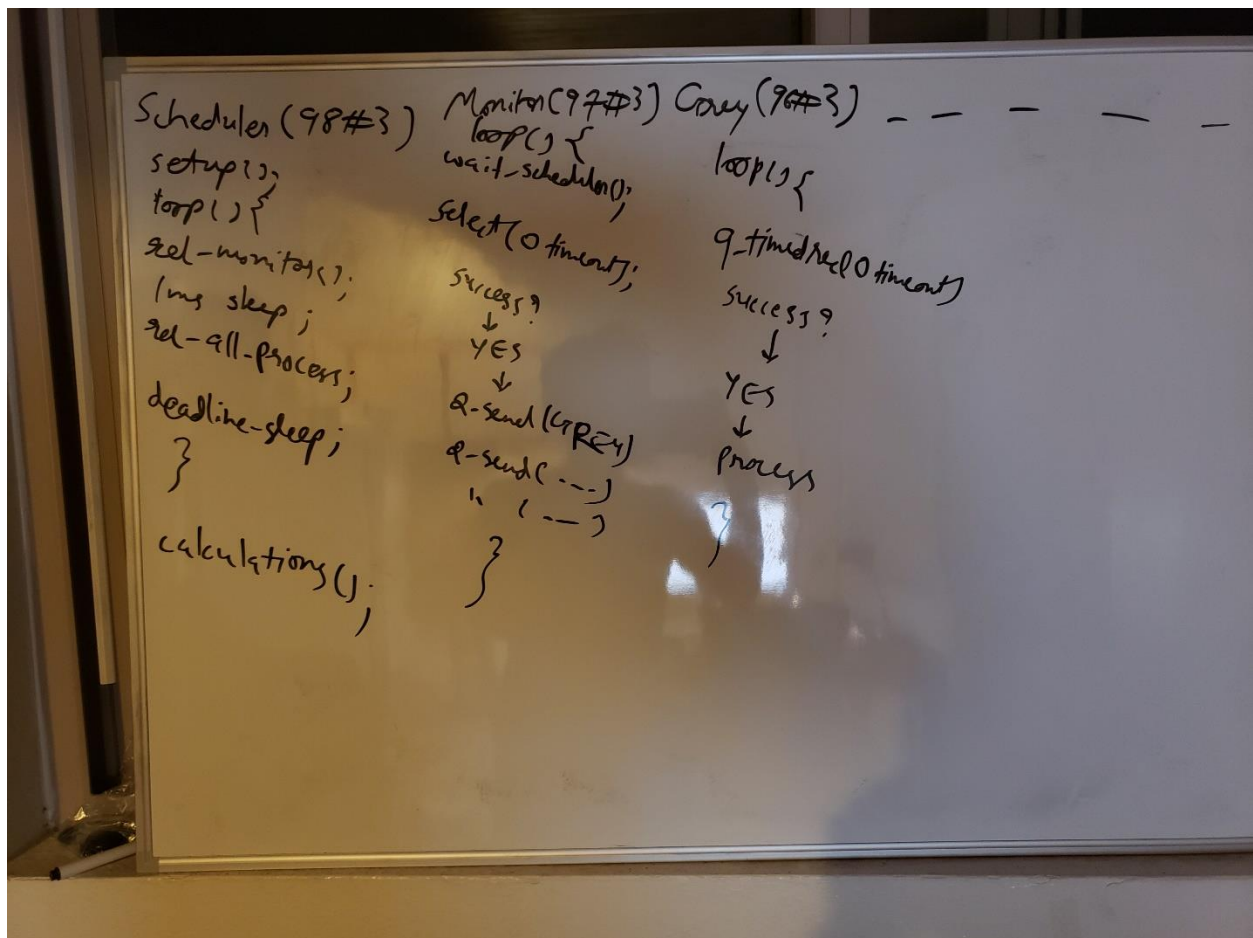 Scheduler (98#3)
setup();
loop(){
rel-monitor();
1ms sleep;
rel-all-process;
deadline-sleep;
}
calculations();
Monitor(97#3)
loop() {
wait-scheduler();
select(0 timeout);
success?
↓
YES
↓
Q-send(GREY)
Q-send(---)
" (---)
}
Grey(96#3) - - - - -
loop(){
q-timedrec(0 timeout)
success?
↓
YES
↓
process
}